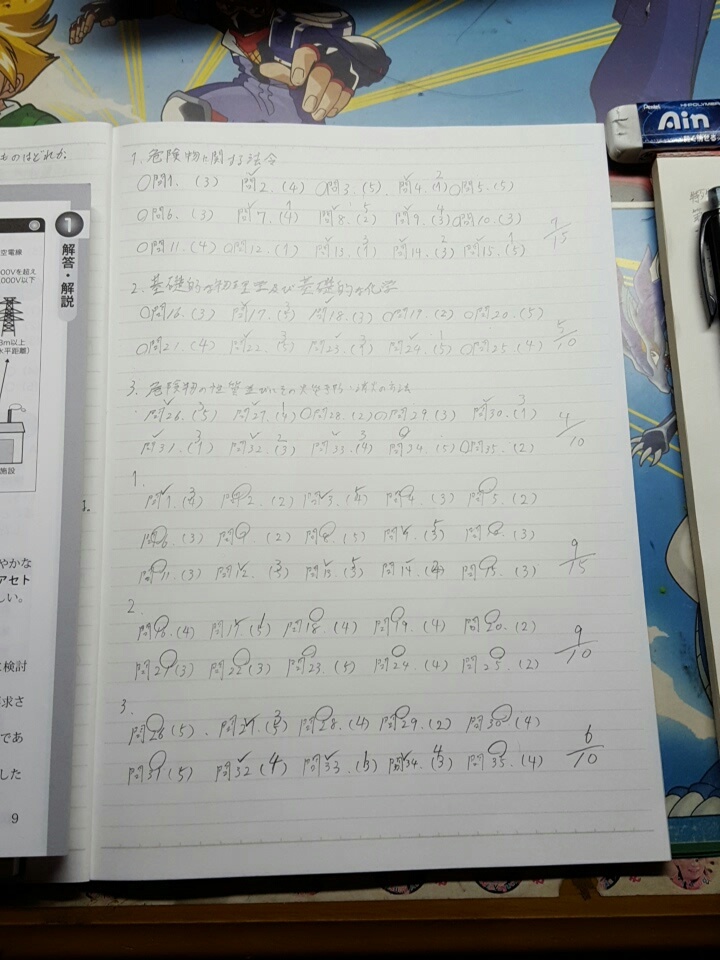 ものはどれか.
空電線
000Vを超え
000V以下
3m以上
水平距離)
施設
1 解答・解説
やかな
アセト
しい。
検討
要求さ
であ
した
9
1. 危険物に関する法令
問1. (3) 問2. (4) 問3. (5) 問4. 問5. (5)
問6. (3) 問7. 問8. 問9. 問10. (3) 7/15
問11. (4) 問12. (1) 問13. 問14. 問15.
2. 基礎的な物理学及び基礎的な化学
問16. (3) 問17. 問18. (3) 問19. (2) 問20. (5)
問21. (4) 問22. 問23. 問24. 問25. (4) 5/10
3. 危険物の性質並びにその火災予防・消火の方法
問26. 問27. 問28. (2) 問29. (3) 問30. 4/10
問31. 問32. 問33. 問34. (5) 問35. (2)
1.
問1. 問2. (2) 問3. 問4. (3) 問5. (2)
問6. (3) 問7. (2) 問8. (5) 問9. 問10. (3)
問11. (3) 問12. 問13. 問14. 問15. (3) 9/15
2.
問16. (4) 問17. 問18. (4) 問19. (4) 問20. (2)
問21. (3) 問22. (3) 問23. (5) 問24. (4) 問25. (2) 9/10
3.
問26. (5) 問27. 問28. (4) 問29. (2) 問30. (4)
問31. (5) 問32. 問33. 問34. 問35. (4) 6/10
Pentel
HI-POLYMER
Ain
軽く消せる